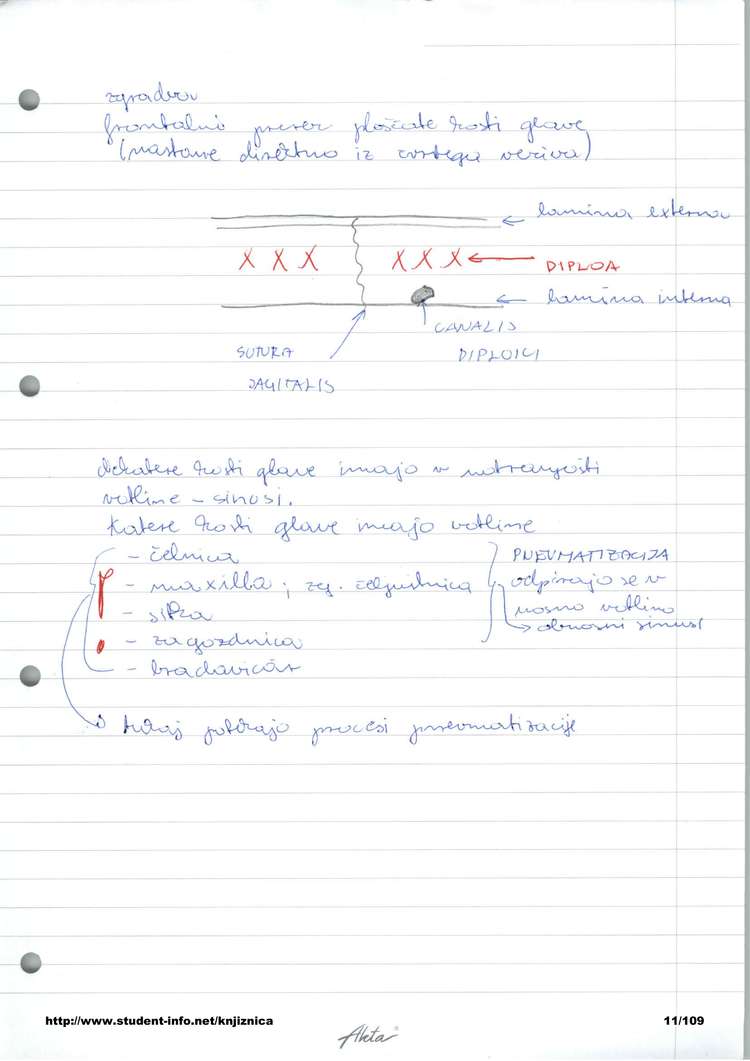 zgradba
frontalni prerez ploščate kosti glave
(nastane direktno iz čvrstega veziva)
lamina externa
X X X X X X
DIPLOA
lamina interna
CANALIS
DIPLOICI
SUTURA
SAGITALIS
nekatere kosti glave imajo v notranjosti
votline - sinusi.
Katere kosti glave imajo votline
- čelnica
- maxilla; zg. čeljustnica
- sitka
- zagozdnica
- bradavičar
PNEVMATIZACIJA
odpirajo se v
nosno votlino
→ obnosni sinusi
tukaj potekajo procesi pnevmatizacije
http://www.student-info.net/knjiznica
11/109
Aheta